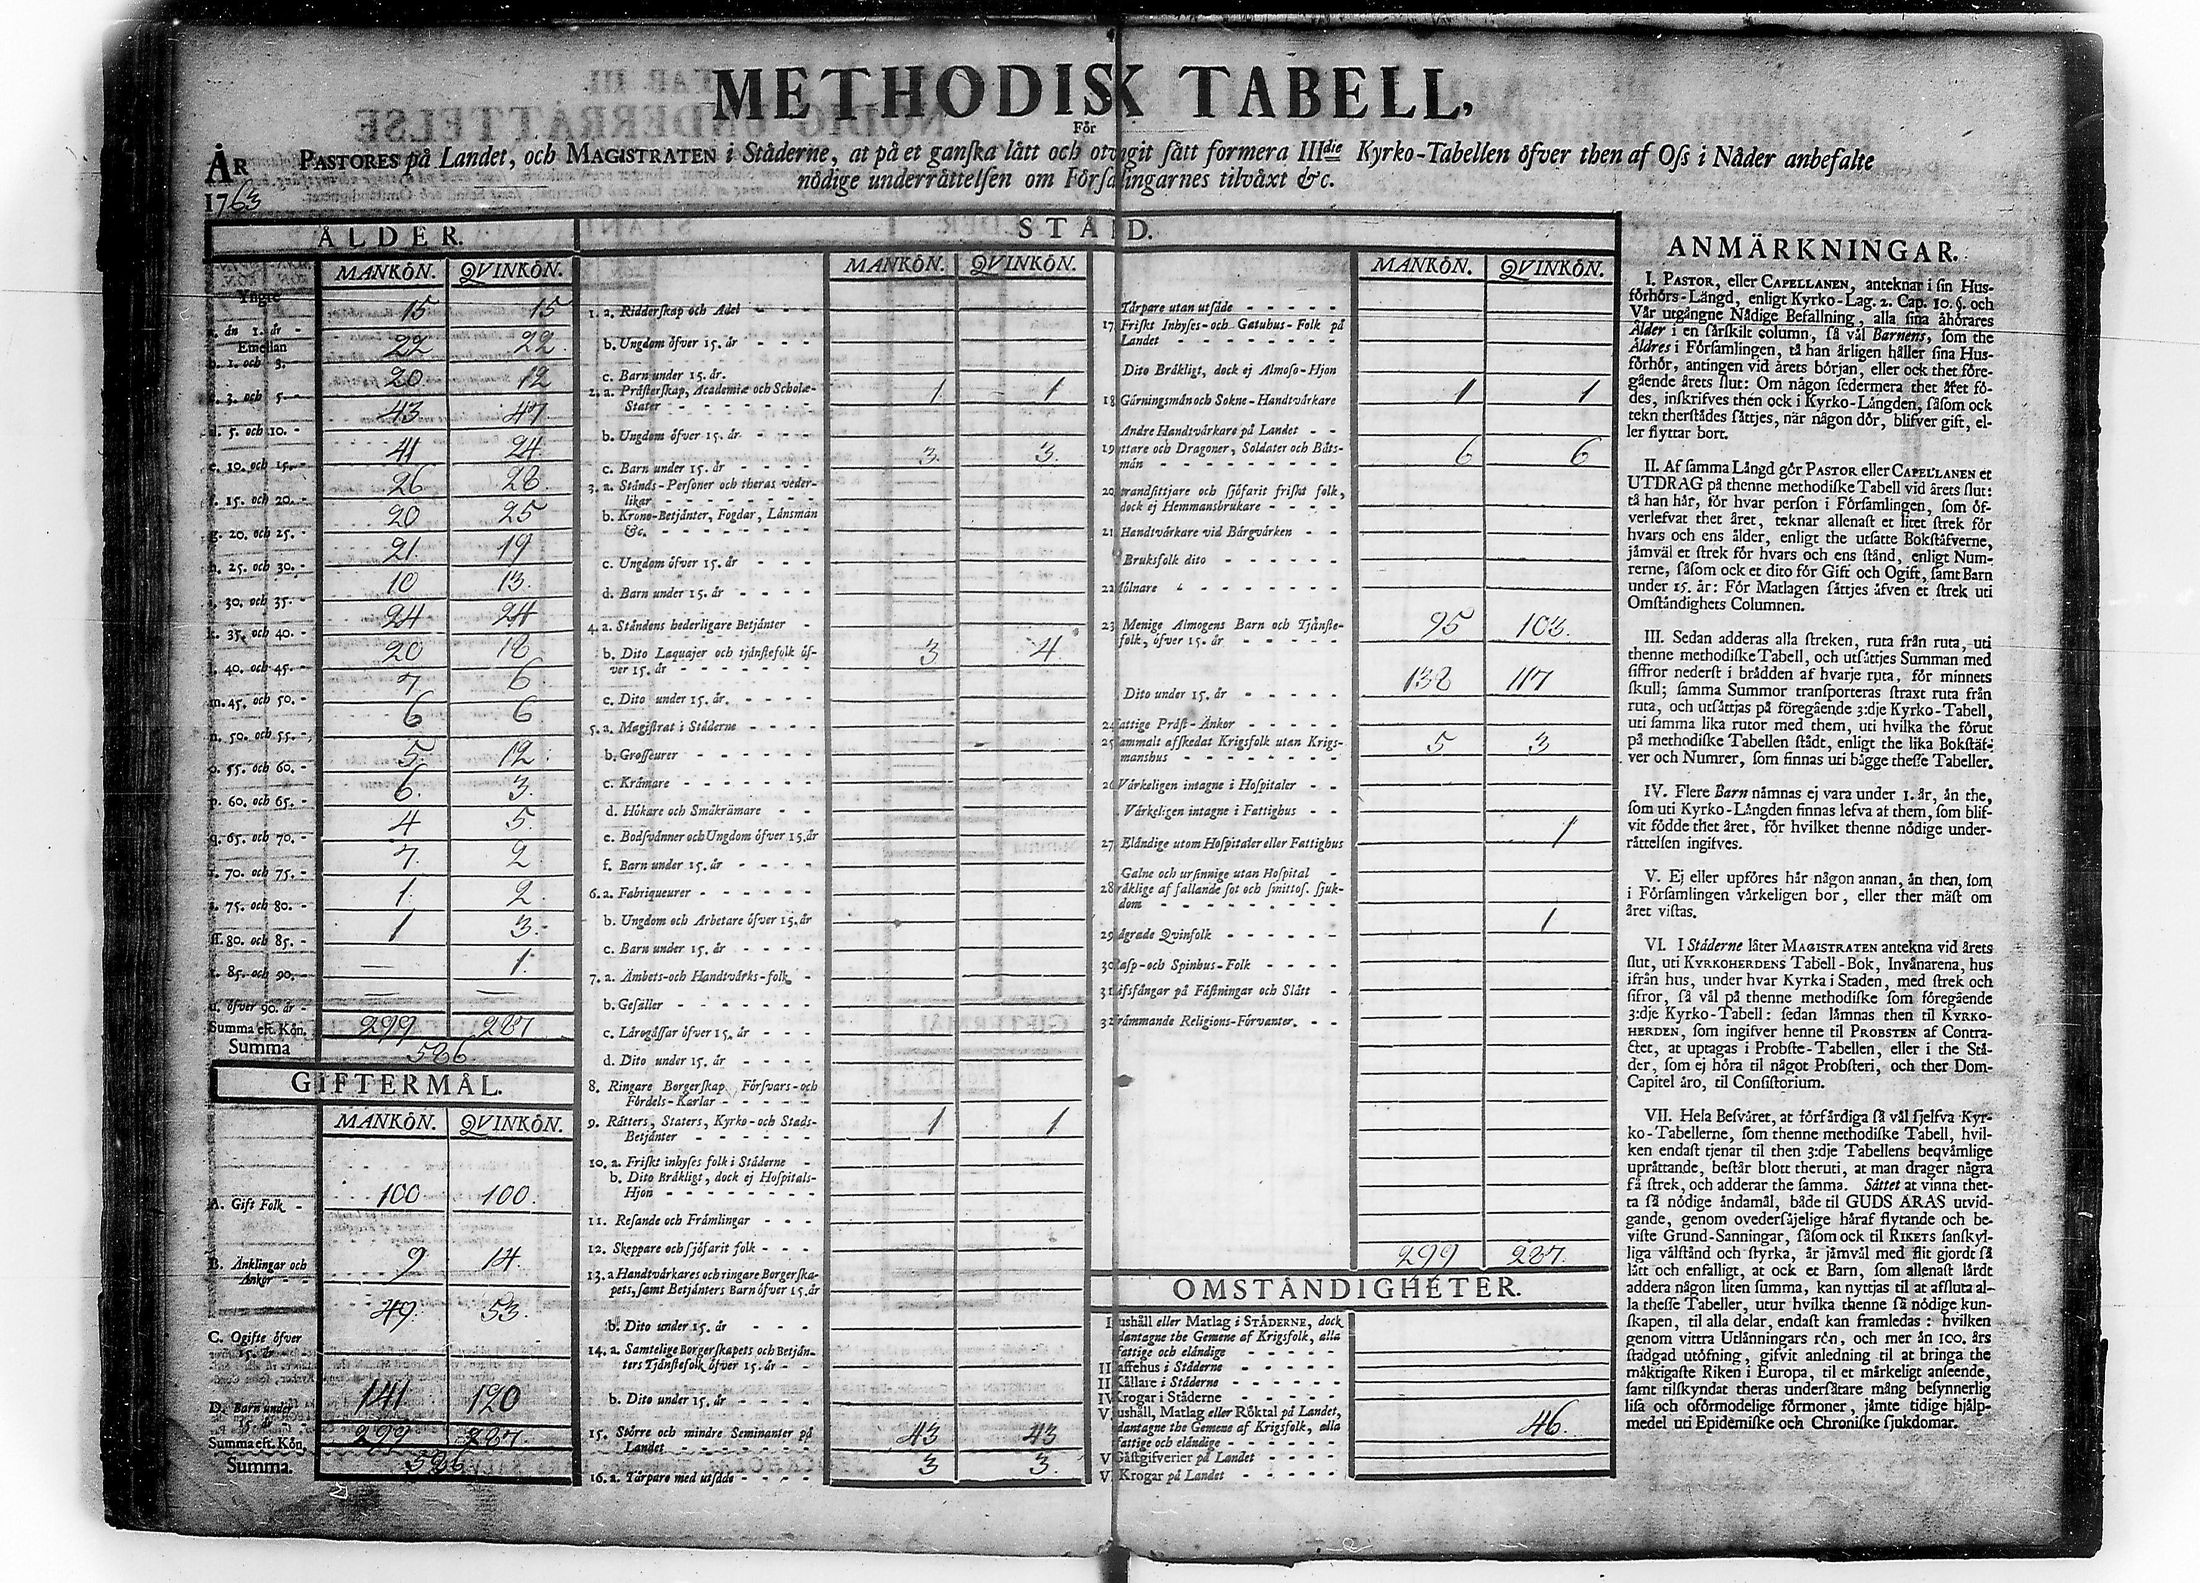 METHODISK TABELL,
För
ÅR PASTORES på Landet, och MAGISTRATEN i Städerne, at på et ganska lätt och otvngit sätt formera IIIdie Kyrko-Tabellen öfver then af Oss i Nåder anbefalte
1763 nödige underrättelsen om Församlingarnes tilväxt &c.
ÅLDER.
MANKÖN. QVINKÖN.
Yngre
a. än 1. år - 15 15
Emellan
b. 1. och 3. 22 22
c. 3. och 5. - 20 12
d. 5. och 10. - 43 47
e. 10. och 15. - 41 24
f. 15. och 20. - 26 28
g. 20. och 25. - 20 25
h. 25. och 30. - 21 19
i. 30. och 35. - 10 13.
k. 35. och 40. - 24 24
l. 40. och 45. - 20 18
m. 45. och 50. - 7 6
n. 50. och 55. - 6 6
o. 55. och 60. - 5. 12.
p. 60. och 65. - 6. 3.
q. 65. och 70. - 4 5.
r. 70. och 75. - 7. 2
s. 75. och 80. - 1. 2.
ss. 80. och 85. - 1 3.
t. 85. och 90. - — 1.
u. öfver 90. år - — —
Summa eft. Kön. 299 287
Summa 586
GIFTERMÅL.
MANKÖN. QVINKÖN.
A. Gift Folk - 100 100.
B. Änklingar och
Änkor - - 9 14.
C. Ogifte öfver
15. år - - 49. 53.
D. Barn under
15. år 141 120
Summa eft. Kön. 299 287.
Summa. 586
STÅND.
MANKÖN. QVINKÖN.
1. a. Ridderskap och Adel - - - -
b. Ungdom öfver 15. år - - -
c. Barn under 15. år.
2. a. Prästerskap, Academiæ och Scholæ-
Stater - - - - - - - 1 1
b. Ungdom öfver 15. år - - - -
c. Barn under 15. år - - - - 3. 3.
3. a. Stånds-Personer och theras veder-
likar - - - - - - -
b. Krono-Betjänter, Fogdar, Länsmän
&c. - - - - - - -
c. Ungdom öfver 15. år - - -
d. Barn under 15. år - - - -
4. a. Ståndens hederligare Betjänter -
b. Dito Laquajer och tjänstefolk öf-
ver 15. år - - - - - - 3 4.
c. Dito under 15. år. - - - -
5. a. Magistrat i Städerne - - - -
b. Grosseurer - - - - - -
c. Krämare - - - - - -
d. Hökare och Småkrämare -
e. Bodsvänner och Ungdom öfver 15. år
f. Barn under 15. år - - - -
6. a. Fabriqueurer - - - - - -
b. Ungdom och Arbetare öfver 15. år
c. Barn under 15. år. - - - -
7. a. Ämbets- och Handtvärks-folk -
b. Gesäller - - - - - - -
c. Lärogåssar öfver 15. år - - -
d. Dito under 15. år - - - -
8. Ringare Borgerskap Försvars- och
Fördels-Karlar - - - - -
9. Rätters, Staters, Kyrko- och Stads-
Betjänter - - - - - - 1 1
10. a. Friskt inhyses folk i Städerne -
b. Dito Bräkligt, dock ej Hospitals-
Hjon - - - - - - -
11. Resande och Främlingar - - -
12. Skeppare och sjöfarit folk - - -
13. a Handtvärkares och ringare Borgerska-
pets, samt Betjänters Barn öfver 15. år
b. Dito under 15. år - - - -
14. a. Samtelige Borgerskapets och Betjän-
ters Tjänstefolk öfver 15. år - -
b. Dito under 15. år - - - -
15. Större och mindre Seminanter på
Landet - - - - - - 43 43
16. a. Tårpare med utsäde - - - - 3 3.
MANKÖN. QVINKÖN.
Tårpare utan utsäde - - - - -
17. Friskt Inhyses- och Gatuhus-Folk på
Landet - - - - - - -
Dito Bräkligt, dock ej Almoso-Hjon
18 Gärningsmän och Sokne-Handtvärkare 1 1
Andre Handtvärkare på Landet - -
19 ttare och Dragoner, Soldater och Båts-
män - - - - - - - - 6 6
20 trandsittjare och sjöfarit friskt folk,
dock ej Hemmansbrukare - - - -
21. Handtvärkare vid Bärgvärken - -
Bruksfolk dito - - - - - -
22 ölnare - - - - - - -
23 Menige Almogens Barn och Tjänste-
folk, öfver 15. år - - - - - 95 103.
Dito under 15. år - - - - - 138 117
24 attige Präst-Änkor - - - - -
25 ammalt afskedat Krigsfolk utan Krigs-
manshus - - - - - - - 5 3
26 Värkeligen intagne i Hospitaler - -
Värkeligen intagne i Fattighus - -
27 Eländige utom Hospitaler eller Fattighus 1
Galne och ursinnige utan Hospital -
28 räklige af fallande sot och smittos. sjuk-
dom - - - - - - - -
29 ågrade Qvinfolk - - - - - - 1
30 Rasp- och Spinhus-Folk - - - -
31 ifsfångar på Fästningar och Slått -
32 rämmande Religions-Förvanter. - -
299 287.
OMSTÄNDIGHETER.
I ushåll eller Matlag i STÄDERNE, dock
dantagne the Gemene af Krigsfolk, alla
fattige och eländige - - - - -
II affehus i Städerne - - - - -
II Källare i Städerne - - - - - -
IV Krogar i Städerne - - - - - -
V ushåll, Matlag eller Röktal på Landet,
dantagne the Gemene af Krigsfolk, alla
fattige och eländige - - - - - - 46.
V Gästgifverier på Landet - - - -
VI Krogar på Landet - - - -
ANMÄRKNINGAR.
I. PASTOR, eller CAPELLANEN, anteknar i sin Hus-
förhörs-Längd, enligt Kyrko-Lag. 2. Cap. 10. §. och
Vår utgångne Nådige Befallning, alla sina åhörares
Ålder i en särskilt column, så väl Barnens, som the
Äldres i Församlingen, tå han årligen håller sina Hus-
förhör, antingen vid årets början, eller ock thet före-
gående årets slut: Om någon sedermera thet året fö-
des, inskrifves then ock i Kyrko-Längden, såsom ock
tekn therstädes sättjes, när någon dör, blifver gift, el-
ler flyttar bort.
II. Af samma Längd gör PASTOR eller CAPELLANEN et
UTDRAG på thenne methodiske Tabell vid årets slut:
tå han här, för hvar person i Församlingen, som öf-
verlefvat thet året, teknar allenast et litet strek för
hvars och ens ålder, enligt the utsatte Bokstäfverne,
jämväl et strek för hvars och ens stånd, enligt Num-
rerne, såsom ock et dito för Gift och Ogift, samt Barn
under 15. år: För Matlagen sättjes äfven et strek uti
Omständighets Columnen.
III. Sedan adderas alla streken, ruta från ruta, uti
thenne methodiske Tabell, och utsättjes Summan med
siffror nederst i brädden af hvarje ruta, för minnets
skull; samma Summor transporteras straxt ruta från
ruta, och utsättjas på föregående 3:dje Kyrko-Tabell,
uti samma lika rutor med them, uti hvilka the förut
på methodiske Tabellen städt, enligt the lika Bokstäf-
ver och Numrer, som finnas uti bägge thesse Tabeller.
IV. Flere Barn nämnas ej vara under 1. år, än the,
som uti Kyrko-Längden finnas lefva at them, som blif-
vit födde thet året, för hvilket thenne nödige under-
rättelsen ingifves.
V. Ej eller upföres här någon annan, än then, som
i Församlingen värkeligen bor, eller ther mäst om
året vistas.
VI. I Städerne låter MAGISTRATEN antekna vid årets
slut, uti KYRKOHERDENS Tabell-Bok, Invånarena, hus
ifrån hus, under hvar Kyrka i Staden, med strek och
sifror, så väl på thenne methodiske som föregående
3:dje Kyrko-Tabell: sedan lämnas then til KYRKO-
HERDEN, som ingifver henne til PROBSTEN af Contra-
ctet, at uptagas i Probste-Tabellen, eller i the Stä-
der, som ej höra til något Probsteri, och ther Dom-
Capitel äro, til Consistorium.
VII. Hela Besväret, at förfärdiga så väl sjelfva Kyr-
ko-Tabellerne, som thenne methodiske Tabell, hvil-
ken endast tjenar til then 3:dje Tabellens beqvämlige
uprättande, består blott theruti, at man drager några
få strek, och adderar the samma. Sättet at vinna thet-
ta så nödige ändamål, både til GUDS ÄRAS utvid-
gande, genom ovedersäjelige häraf flytande och be-
viste Grund-Sanningar, såsom ock til RIKETS sanskyl-
liga välstånd och styrka, är jämväl med flit gjordt så
lätt och enfalligt, at ock et Barn, som allenast lärdt
addera någon liten summa, kan nyttjas til at afsluta al-
la thesse Tabeller, utur hvilka thenne så nödige kun-
skapen, til alla delar, endast kan framledas: hvilken
genom vittra Utlänningars rön, och mer än 100. års
stadgad utöfning, gifvit anledning til at bringa the
mäktigaste Riken i Europa, til et märkeligt anseende,
samt tilskyndat theras undersåtare mång besynnerlig
lisa och oförmodelige förmoner, jämte tidige hjälp-
medel uti Epidemiske och Chroniske sjukdomar.